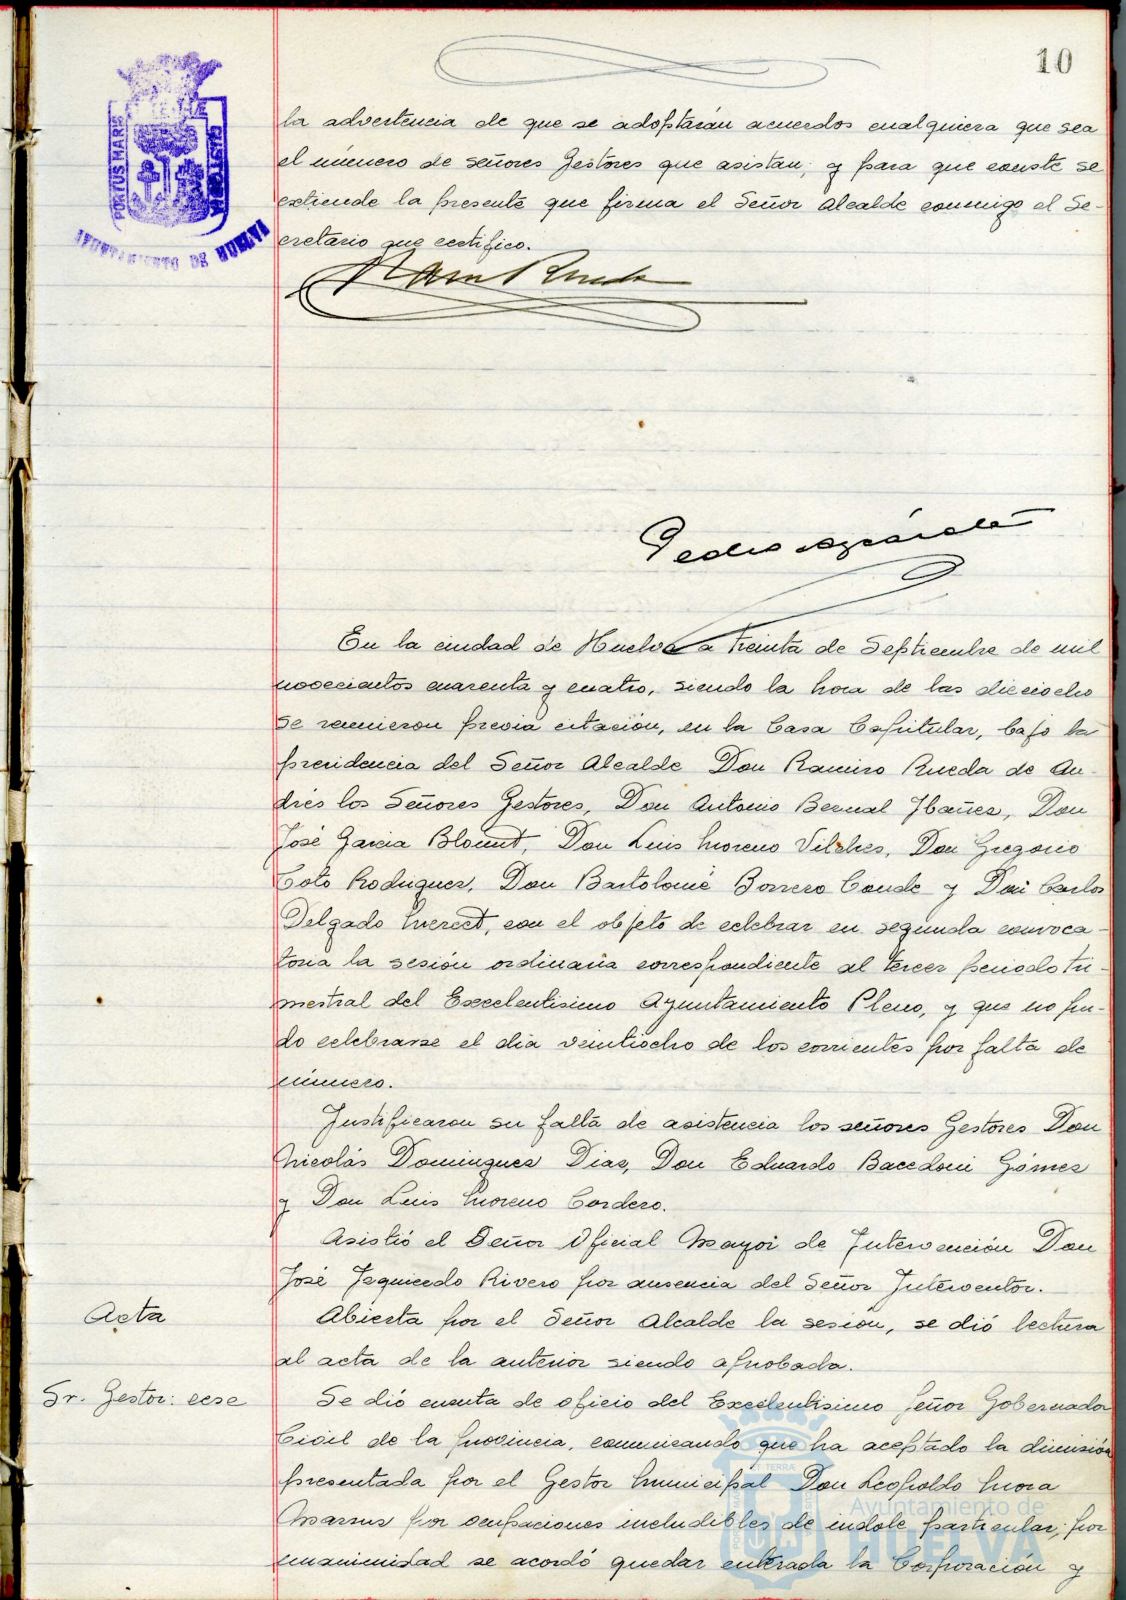 10
PORTUS MARIS
AYUNTAMIENTO DE HUELVA
la advertencia de que se adoptarán acuerdos cualquiera que sea
el número de señores Gestores que asistan; y para que conste se
extiende la presente que firma el Señor Alcalde conmigo el Se-
cretario que certifico.
Ram Rueda
Pedro
En la ciudad de Huelva a treinta de Septiembre de mil
novecientos cuarenta y cuatro, siendo la hora de las dieciocho
se reunieron previa citación, en la Casa Capitular, bajo la
presidencia del Señor Alcalde Don Ramiro Rueda de An-
drés los Señores Gestores, Don Antonio Bernal Ibañez, Don
José Garcia Blount, Don Luis Moreno Vilches, Don Gregorio
Coto Rodriguez, Don Bartolomé Borrero Conde y Don Carlos
Delgado, con el objeto de celebrar en segunda convoca-
toria la sesión ordinaria correspondiente al tercer periodo tri-
mestral del Excelentisimo Ayuntamiento Pleno, y que no pu-
do celebrarse el día veintiocho de los corrientes por falta de
número.
Justificaron su falta de asistencia los señores Gestores Don
Nicolás Dominguez Diaz, Don Eduardo Bacedoni Gómez
y Don Luis Moreno Cordero.
Asistió el Señor Oficial Mayor de Intervención Don
José Izquierdo Rivero por ausencia del Señor Interventor.
Acta
Abierta por el Señor Alcalde la sesión, se dió lectura
al acta de la anterior siendo aprobada.
Sr. Gestor: cese
Se dió cuenta de oficio del Excelentisimo Señor Gobernador
Civil de la provincia, comunicando que ha aceptado la dimisión
presentada por el Gestor Municipal Don Leopoldo Mora
por ocupaciones ineludibles de indole particular; por
unanimidad se acordó quedar enterada la Corporación y
Ayuntamiento de
HUELVA